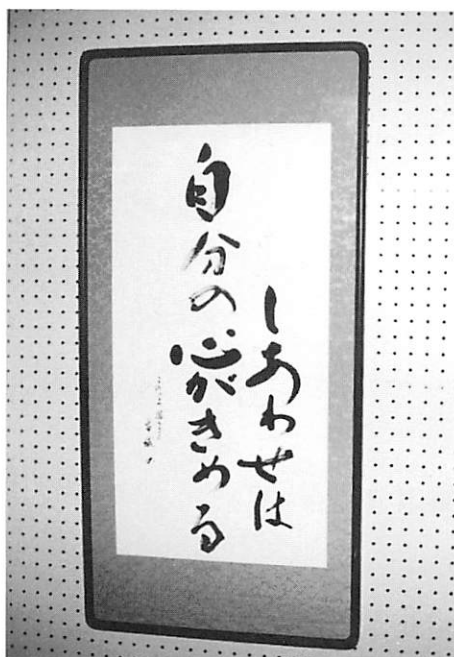 しあわせは
自分の心がきめる